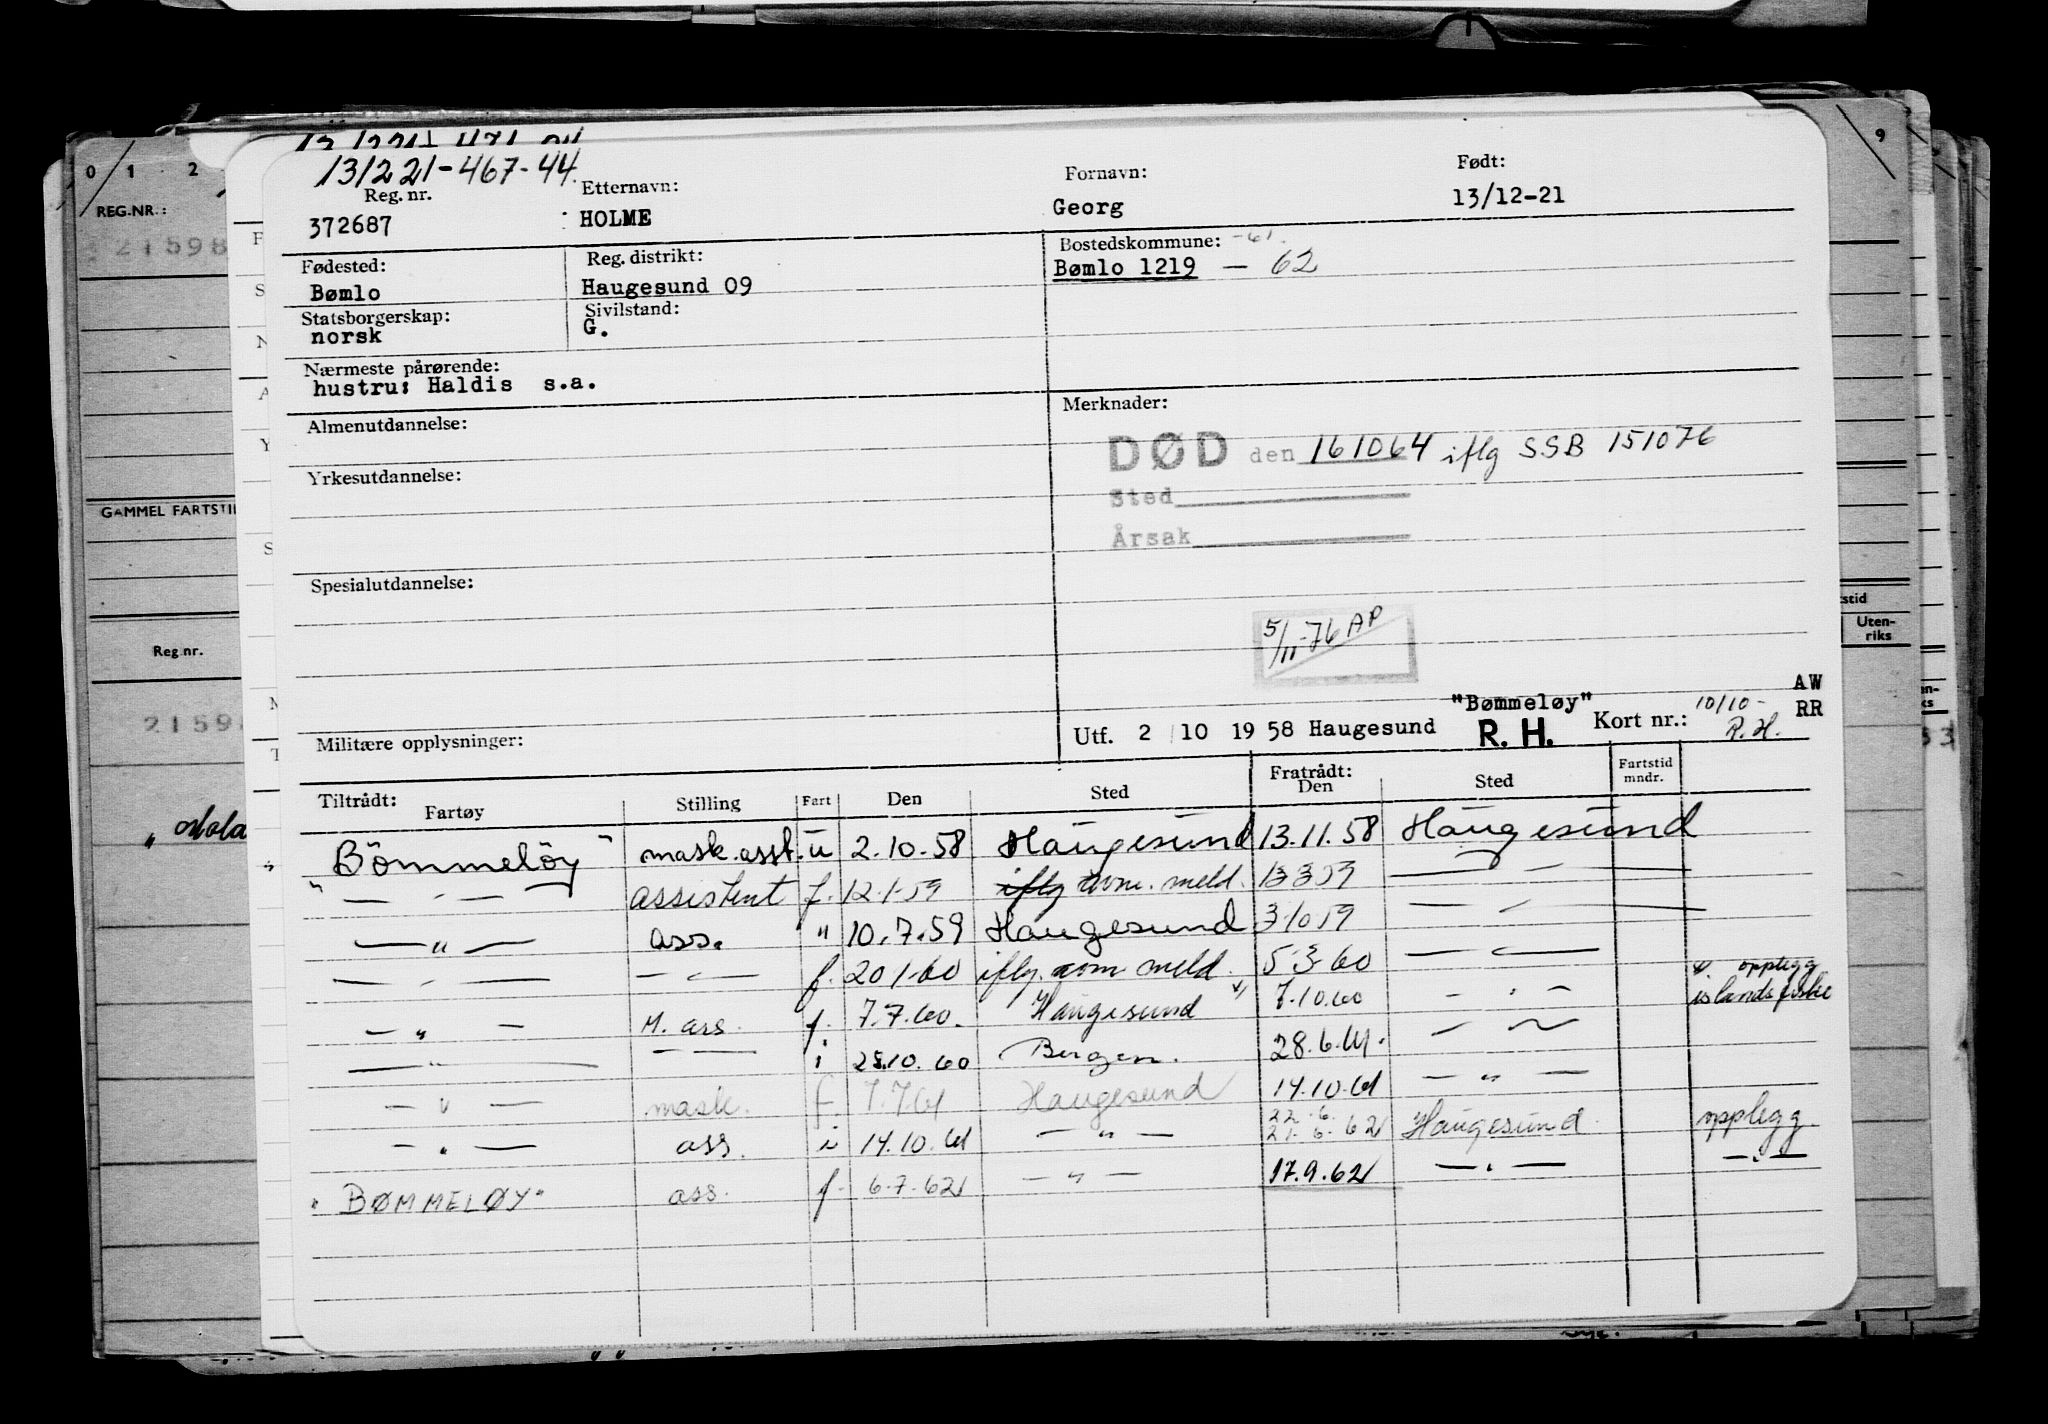 131221-467-44.
Reg. nr. Etternavn: Fornavn: Født:
372687 HOLME Georg 13/12-21
Fødested: Reg. distrikt: Bostedskommune: -61.
Bømlo Haugesund 09 Bømlo 1219 — 62
Statsborgerskap: Sivilstand:
norsk G.
Nærmeste pårørende:
hustru: Haldis s.a.
Almenutdannelse: Merknader:
DØD den 161064 iflg SSB 151076
Yrkesutdannelse: Sted
Årsak
Spesialutdannelse:
5/11-76 AP
"Bømmeløy" 10/10- AW
Militære opplysninger: Utf. 2/10 1958 Haugesund R. H. Kort nr.: R.H. RR
Tiltrådt: Fratrådt: Fartstid mndr.
Fartøy Stilling Fart Den Sted Den Sted
"Bömmelöy" mask.asst. u 2.10.58 Haugesund 13.11.58 Haugesund
— " — assistent f. 12-1-59 iflg avm. meld. 13359 — " —
— " — ass. " 10.7.59 Haugesund 3-10 59 — " —
— " — — " — f. 20 1-60 iflg. avm meld. 5-3-60 — " —
— " — M. ass. f. 7.7.60. Haugesund 7.10.60 — " — v. opplegg islandsfiske
— " — — " — i 25.10.60 Bergen. 28.6.61. — " —
— " — mask. f. 7.7.61 Haugesund 14.10.61 — " —
— " — ass. i 14.10.61 — " — 22.6. 21-6-62 Haugesund. opplegg.
"BØMMELØY" ass. f. 6.7.62 — " — 17.9.62 — " — — " —
0 1 2
REG.NR.:
21598
GAMMEL FARTSTI
Reg nr.
2159
9
stid
Uten-
riks